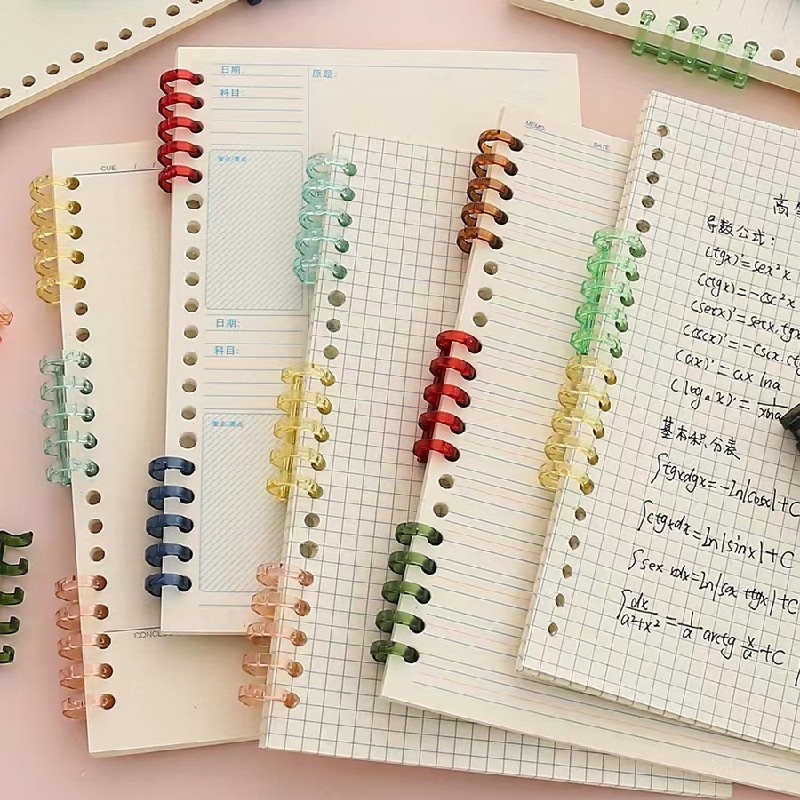 CUE / /
日期:
原题:
科目:
重点/要点
日期:
科目:
重点/要点
MEMO
DATE
导数公式:
(tgx)'=sec²x
(ctgx)'=-csc²x
(secx)'=secx.tgx
(cscx)'=-cscx.ctg
(aˣ)'=aˣ lna
(logₐx)'=1/xlna
基本积分表
∫tgxdgx=-ln|cosx|+C
∫ctgxdx=ln|sinx|+C
∫sex xdx=ln|sex +tgx|+C
∫dx/a²+x²=1/a arctg x/a+C